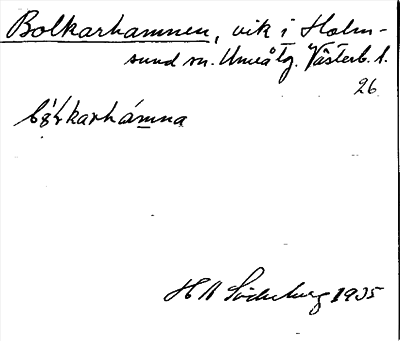 Bolkarhamnen, vik i Holm-
sund sn. Umeå tg. Västerb. l.
26
H A Söderberg 1935